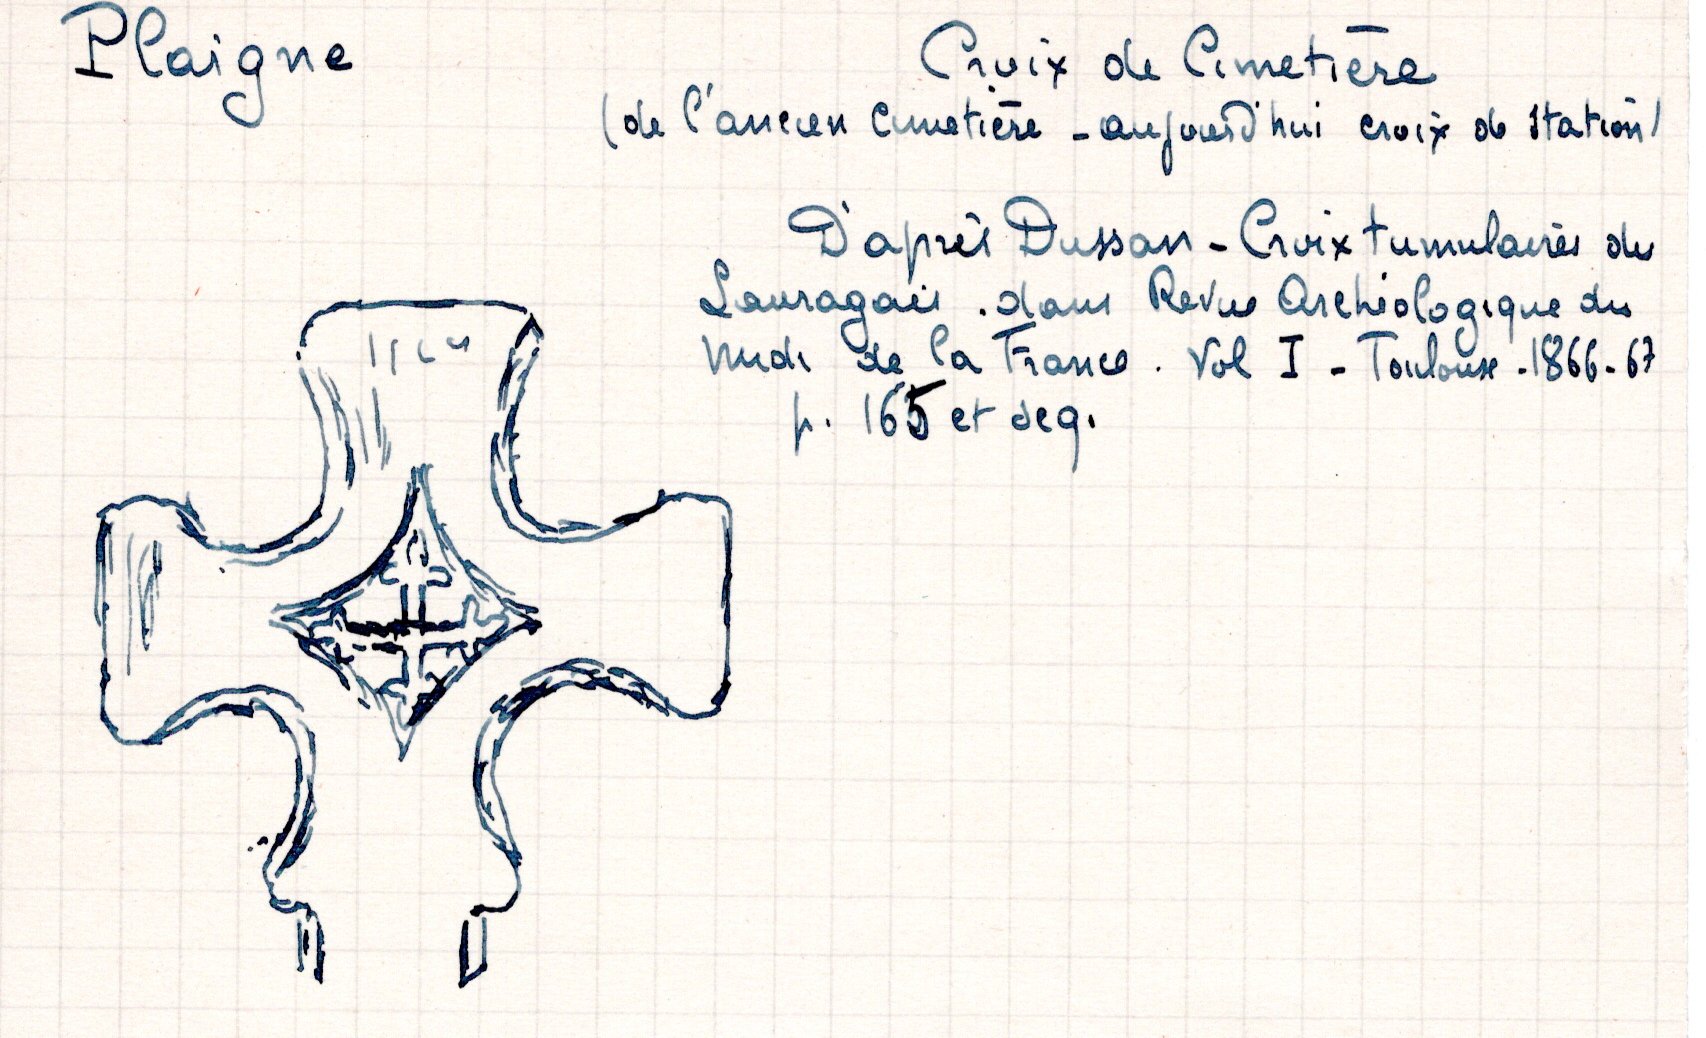 Plaigne
Croix de Cimetière
(de l'ancien cimetière - aujourd'hui croix de station)
D'après Dussan - Croix tumulaires du
Lauragais. dans Revue Archéologique du
Midi de la France. Vol I - Toulouse - 1866-67
p. 165 et seq.